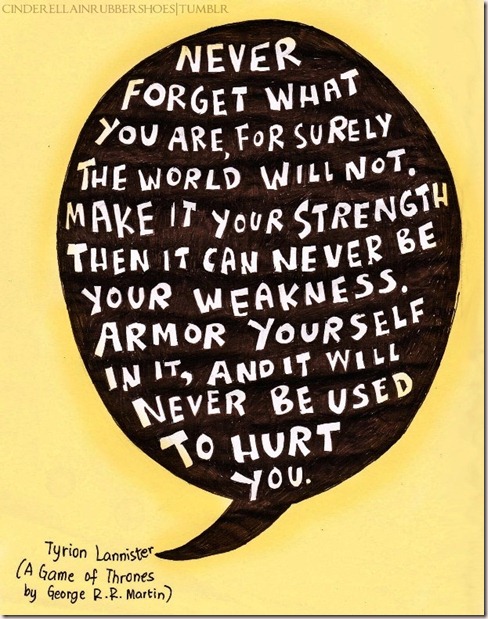 CINDERELLAINRUBBERSHOES|TUMBLR
NEVER
FORGET WHAT
YOU ARE, FOR SURELY
THE WORLD WILL NOT.
MAKE IT YOUR STRENGTH
THEN IT CAN NEVER BE
YOUR WEAKNESS.
ARMOR YOURSELF
IN IT, AND IT WILL
NEVER BE USED
TO HURT
YOU.
Tyrion Lannister
(A Game of Thrones
by George R.R. Martin)